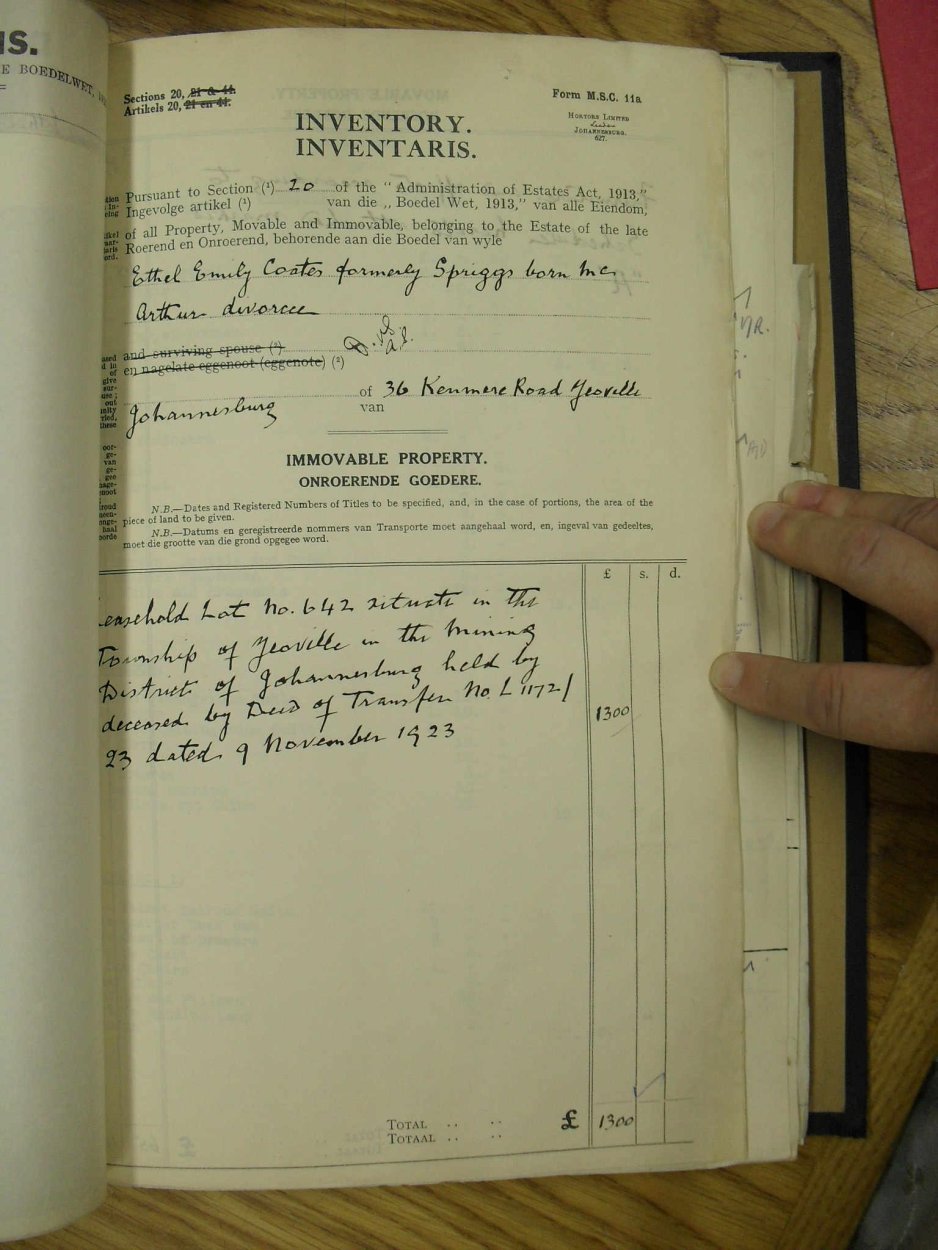 IS.
E BOEDELWET,
Sections 20, 21 & 44.
Artikels 20, 21 en 44.
Form M.S.C. 11a
HORTORS LIMITED
JOHANNESBURG.
627.
INVENTORY.
INVENTARIS.
Pursuant to Section (¹) 20 of the " Administration of Estates Act, 1913,"
Ingevolge artikel (¹) van die ,, Boedel Wet, 1913," van alle Eiendom,
of all Property, Movable and Immovable, belonging to the Estate of the late
Roerend en Onroerend, behorende aan die Boedel van wyle
Ethel Emily Coates formerly Spriggs born Mc
Arthur divorcee
and surviving spouse (²)
en nagelate eggenoot (eggenote) (²)
of 36 Kenmere Road Yeoville
van
Johannesburg
IMMOVABLE PROPERTY.
ONROERENDE GOEDERE.
N.B.—Dates and Registered Numbers of Titles to be specified, and, in the case of portions, the area of the
piece of land to be given.
N.B.—Datums en geregistreerde nommers van Transporte moet aangehaal word, en, ingeval van gedeeltes,
moet die grootte van die grond opgegee word.
£ s. d.
easehold Lot No. 642 situate in the
Township of Yeoville in the Mining
District of Johannesburg held by
deceased by Deed of Transfer No. L 1172/
23 dated 9 November 1923
1300
TOTAL .. .. £ 1300
TOTAAL .. ..